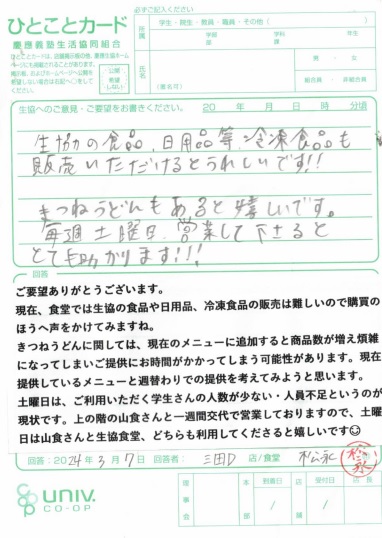 必ずご記入ください
ひとことカード
慶應義塾生活協同組合
所属
学生・院生・教員・職員・その他（　　　）
学部
学科
年
氏名
男・女
（匿名可）
組合員・非組合員
公開
希望しない
生協へのご意見・ご要望をお書きください。　20　年　月　日　時　分頃
生協の食品、日用品等、冷凍食品も
販売いただけるとうれしいです!!
きつねうどんもあると嬉しいです。
毎週土曜日、営業して下さると
とても助かります!!!
回答
ご要望ありがとうございます。
現在、食堂では生協の食品や日用品、冷凍食品の販売は難しいので購買の
ほうへ声をかけてみますね。
きつねうどんに関しては、現在のメニューに追加すると商品数が増え煩雑
になってしまいご提供にお時間がかかってしまう可能性があります。現在
提供しているメニューと週替わりでの提供を考えてみようと思います。
土曜日は、ご利用いただく学生さんの人数が少ない・人員不足というのが
現状です。上の階の山食さんと一週間交代で営業しておりますので、土曜
日は山食さんと生協食堂、どちらも利用してくださると嬉しいです☺
回答：2024年3月7日　回答者：　三田D　店/食堂　松永　松永
UNIV.
CO-OP
理事会
本部
到着日
店舗
受付日
店長
/
/